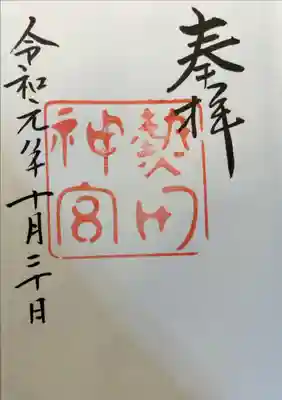 奉拝
熱田
神宮
令和元年十月二十日